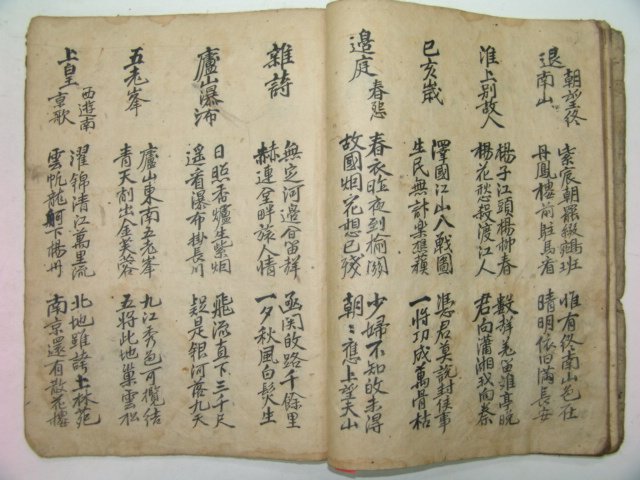 朝望終
退南山
紫宸朝罷綴鵷班 惟有終南山色在
丹鳳樓前駐馬看 晴明依舊滿長安
淮上別故人
楊子江頭楊柳春 數聲羌笛淮亭晚
楊花愁殺渡江人 君向瀟湘我向秦
己亥歲
澤國江山入戰圖 憑君莫說封侯事
生民無計樂樵蘇 一將功成萬骨枯
邊庭春怨
春衣昨夜到榆關 少婦不知故未得
故國烟花想已殘 朝〻應上望夫山
雜詩
無定河邊合笛聲 函関故路千餘里
赫連全畔旅人情 一夕秋風白髮生
廬山瀑布
日照香爐生紫烟 飛流直下三千尺
遙看瀑布掛長川 疑是銀河落九天
五老峯
廬山東南五老峯 九江秀色可攬結
青天削出金芙蓉 五將此地巢雲松
上皇西遊南
京歌
濯錦清江萬里流 北地雖誇上林苑
雲帆龍舸下楊州 南京還有散花樓